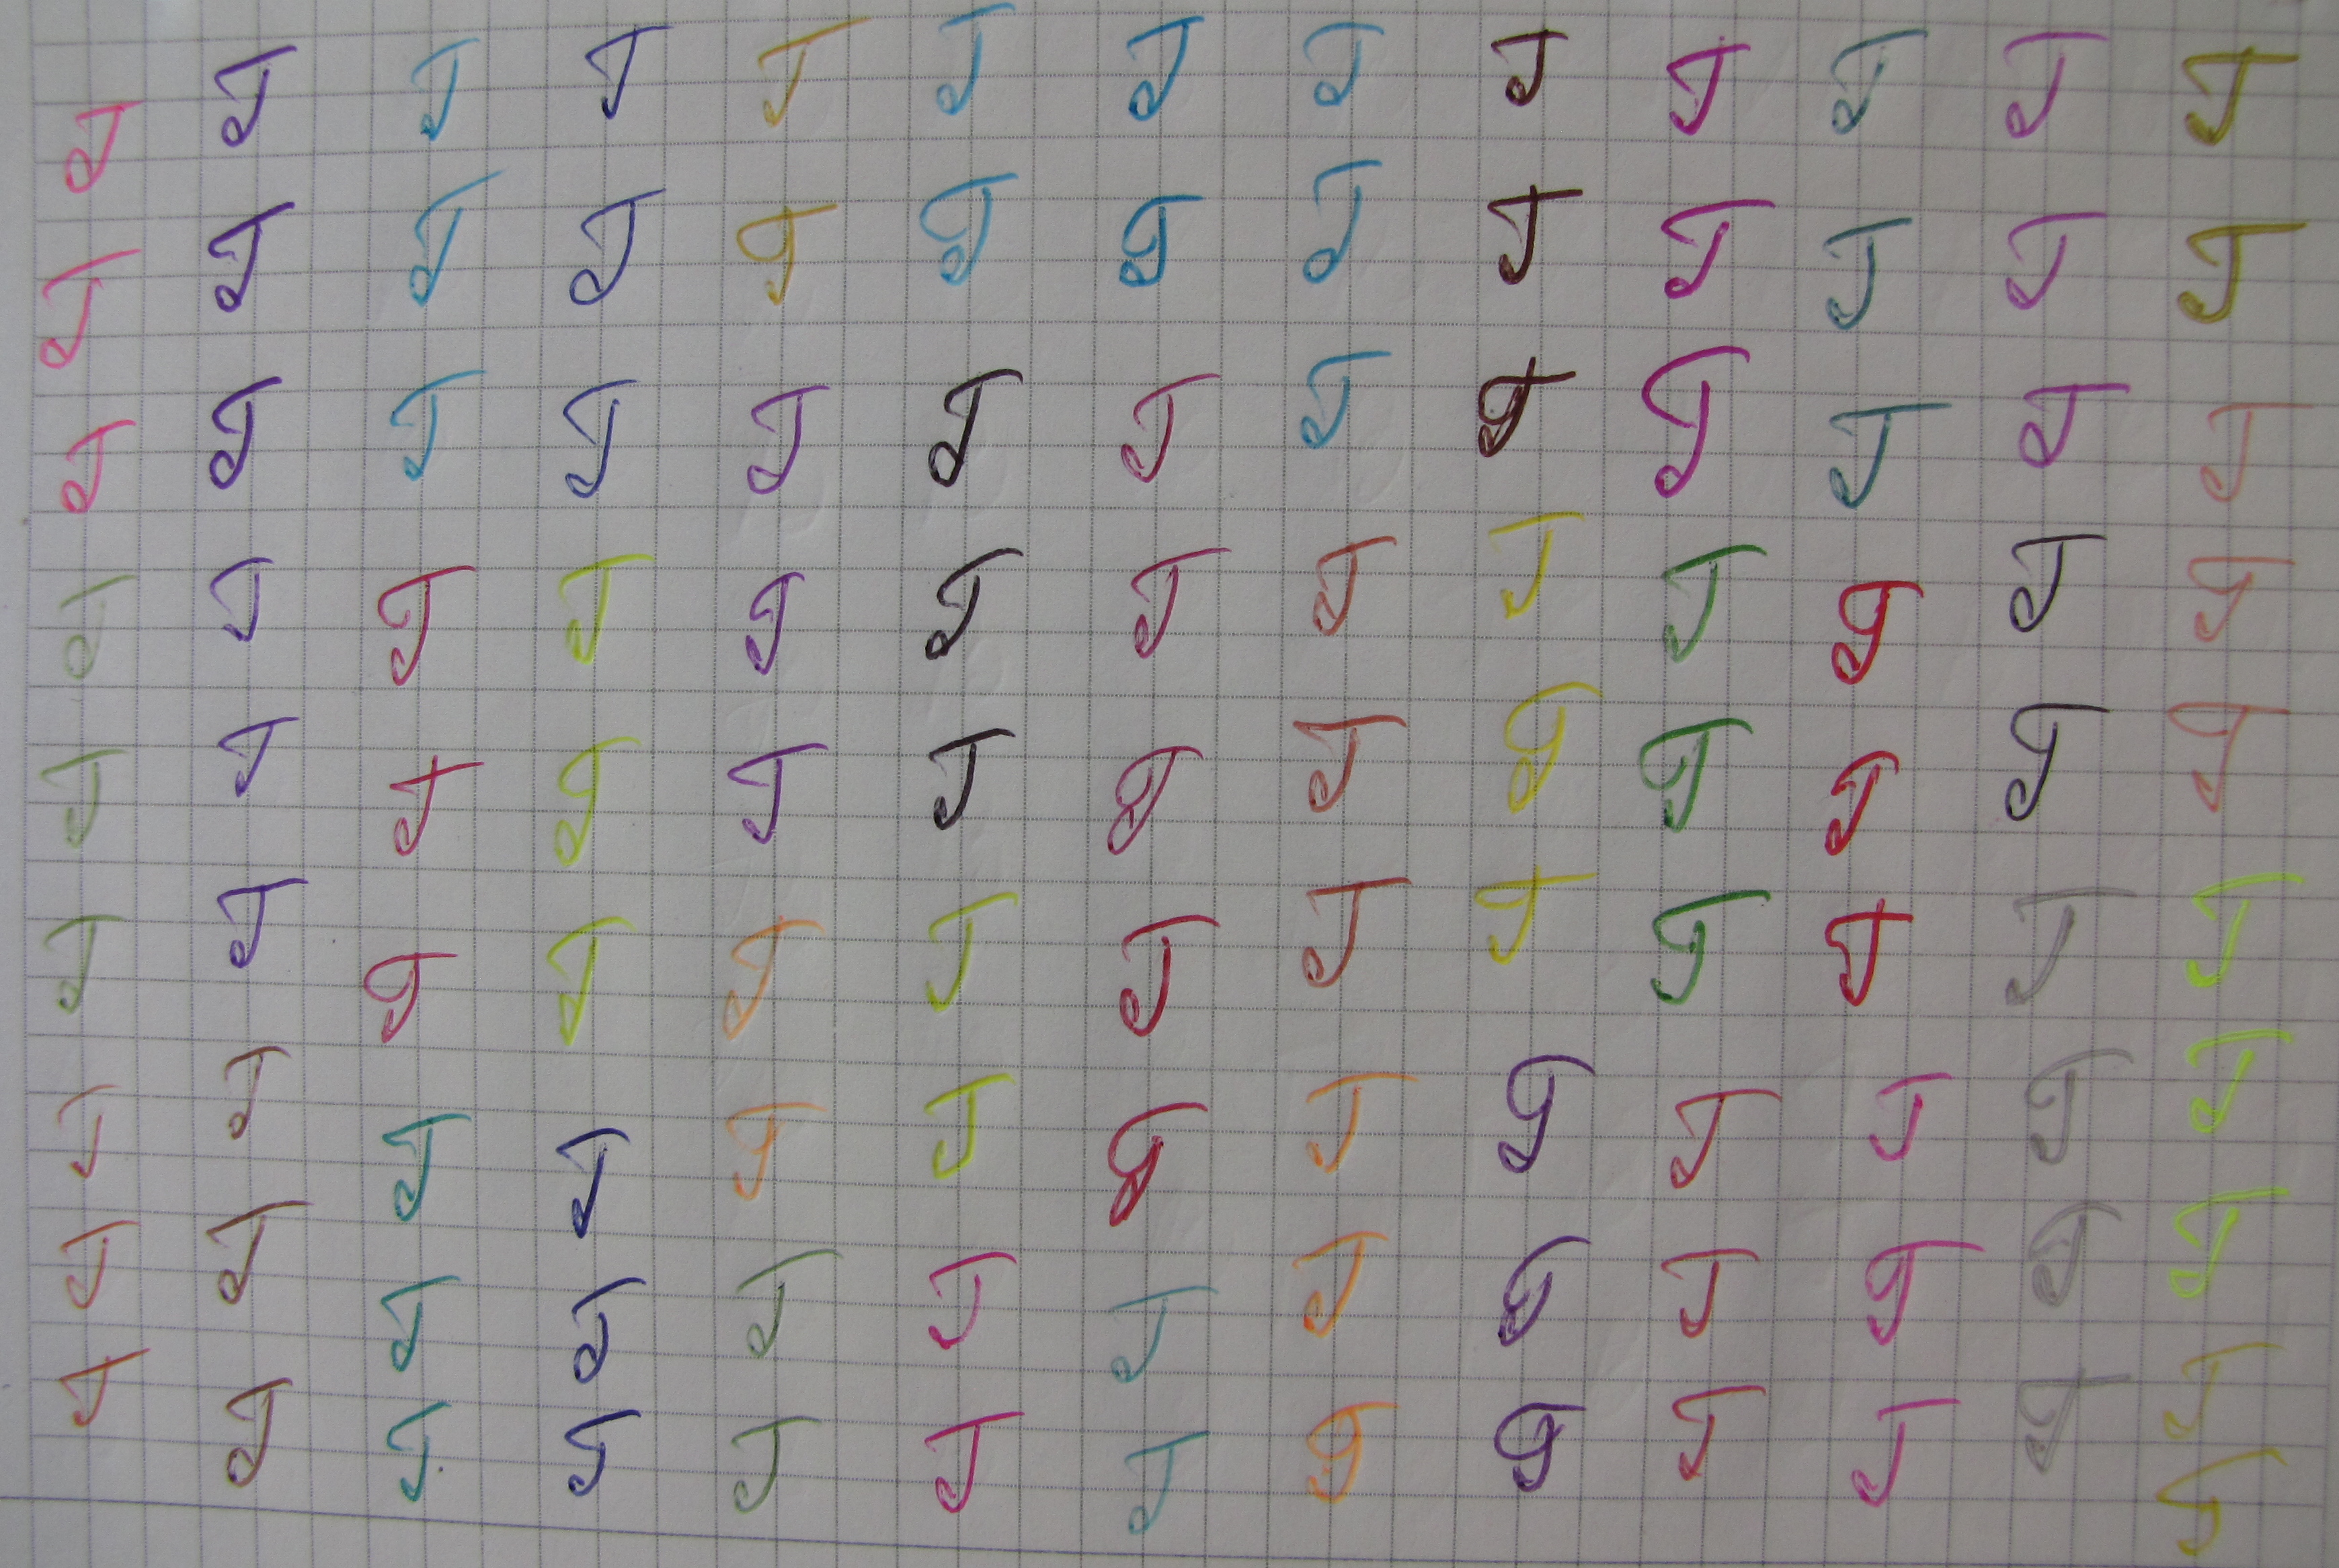 J J J J J J J J J J J J J
J J J J J J J J J J J J J
J J J J J J J J J J J J J
J J J J J J J J J J J J J
J J J J J J J J J J J J J
J J J J J J J J J J J J J
J J J J J J J J J J J J J
J J J J J J J J J J J J J
J J J J J J J J J J J J J
J